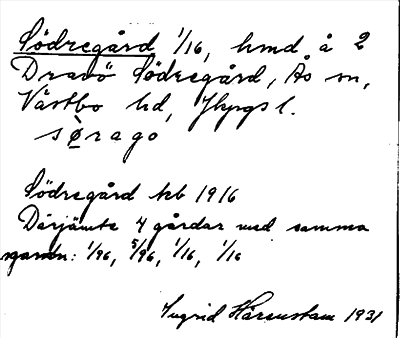 Södregård 1/16, hmd å 2
Dravö Södregård, Ås sn,
Västbo hd, Jkpgs l.
sørago
Södregård kb 1916
Därjämte 4 gårdar med samma
namn: 1/96, 5/96, 1/16, 1/16
Ingrid Hårenstam 1931